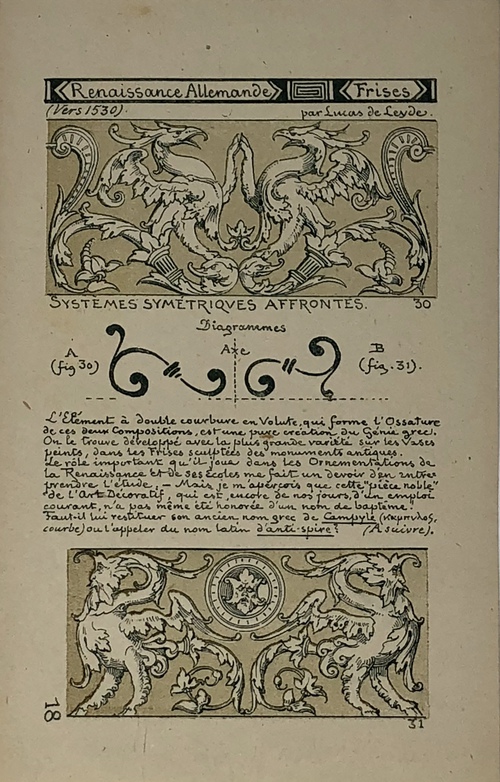 Renaissance Allemande Frises
(Vers 1530). par Lucas de Leyde.
SYSTÈMES SYMÉTRIQVES AFFRONTÉS. 30
Diagrammes
A Axe B
(fig 30) (fig. 31).
L'Elément à double courbure en Volute, qui forme l'Ossature
de ces deux Compositions, est une pure création du Génie grec.
On le trouve développé avec la plus grande variété sur les Vases
peints, dans les Frises sculptées des monuments antiques.
Le rôle important qu'il joua dans les Ornementations de
la Renaissance et de ses écoles me fait un devoir d'en entre
prendre l'étude. — Mais je m'aperçois que cette "pièce noble"
de l'Art Décoratif, qui est, encore de nos jours, d'un emploi
courant, n'a pas même été honorée d'un nom de baptême!
Faut-il lui restituer son ancien nom grec de Campyle (καμπυλος,
courbe) ou l'appeler du nom latin d'anti-spire? (A suivre).
18
31